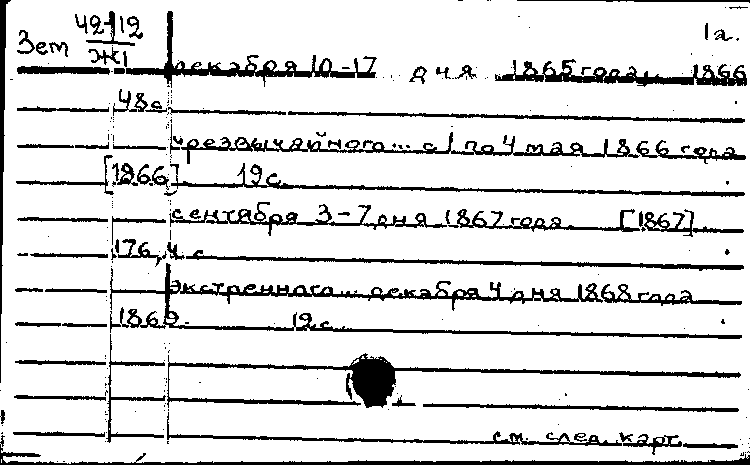 Зем 42-12 1а.
Ж1
декабря 10-17 дня 1865 года, 1866
48с.
чрезвычайного... с 1 по 4 мая 1866 года
[1866] 19с.
сентября 3-7 дня 1867 года [1867]
176, 4 с
экстренного... декабря 4 дня 1868 года
1869. 12с.
см. след. карт.